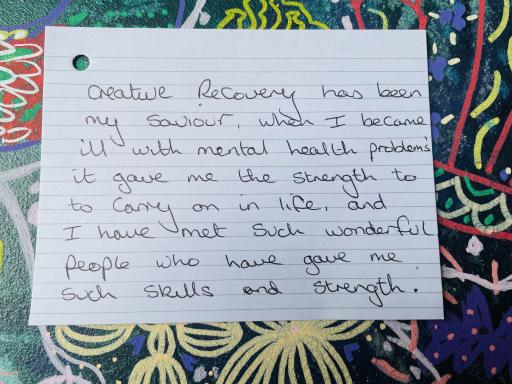 Creative Recovery has been
my Saviour, when I became
ill with mental health problems
it gave me the strength to
to carry on in life, and
I have met such wonderful
people who have gave me
such skills and strength.